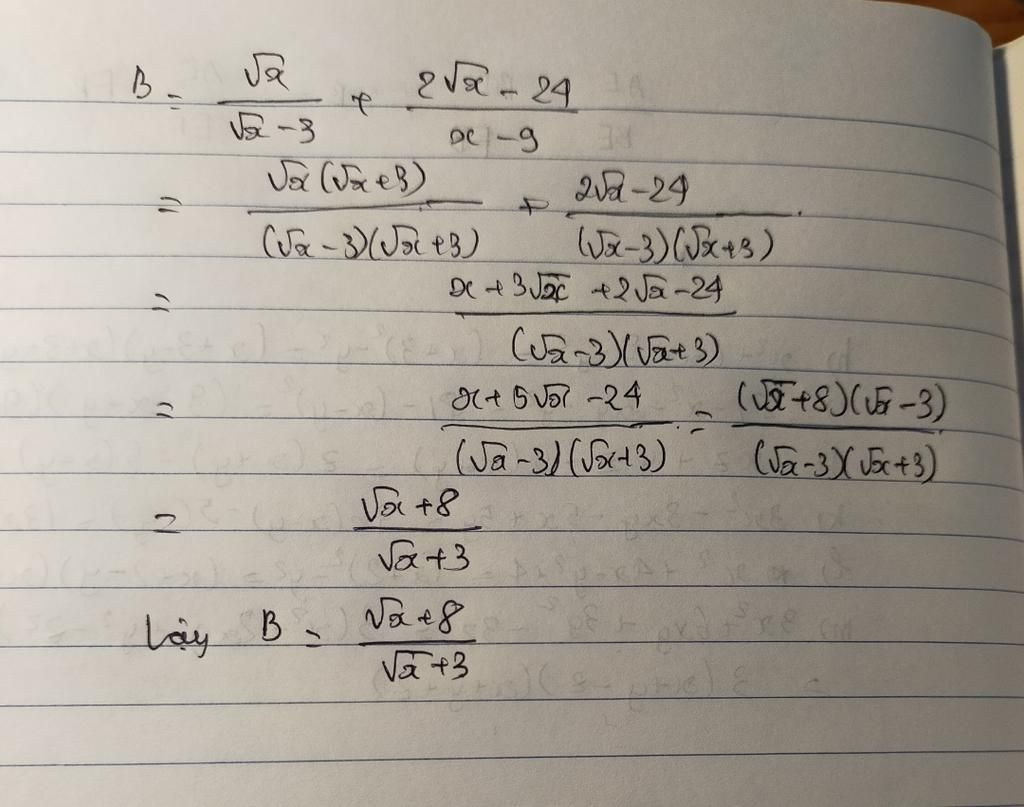 B = √x/(√x - 3) + (2√x - 24)/(x - 9)
= √x(√x + 3)/((√x - 3)(√x + 3)) + (2√x - 24)/((√x - 3)(√x + 3))
= (x + 3√x + 2√x - 24)/((√x - 3)(√x + 3))
= (x + 5√x - 24)/((√x - 3)(√x + 3)) = ((√x + 8)(√x - 3))/((√x - 3)(√x + 3))
= (√x + 8)/(√x + 3)
Vậy B = (√x + 8)/(√x + 3)